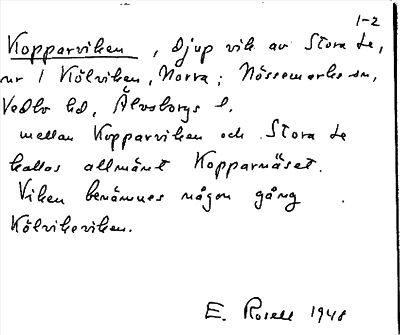 1-2
Kopparviken, Djup vik av Stora Le,
nr 1 Kölviken, Norra; Nössemarks sn,
Vedbo hd, Älvsborgs l.
mellan Kopparviken och Stora Le
kallas allmänt Kopparnäset.
Viken benämnes någon gång
Kölvikeviken.
E. Rosell 1948